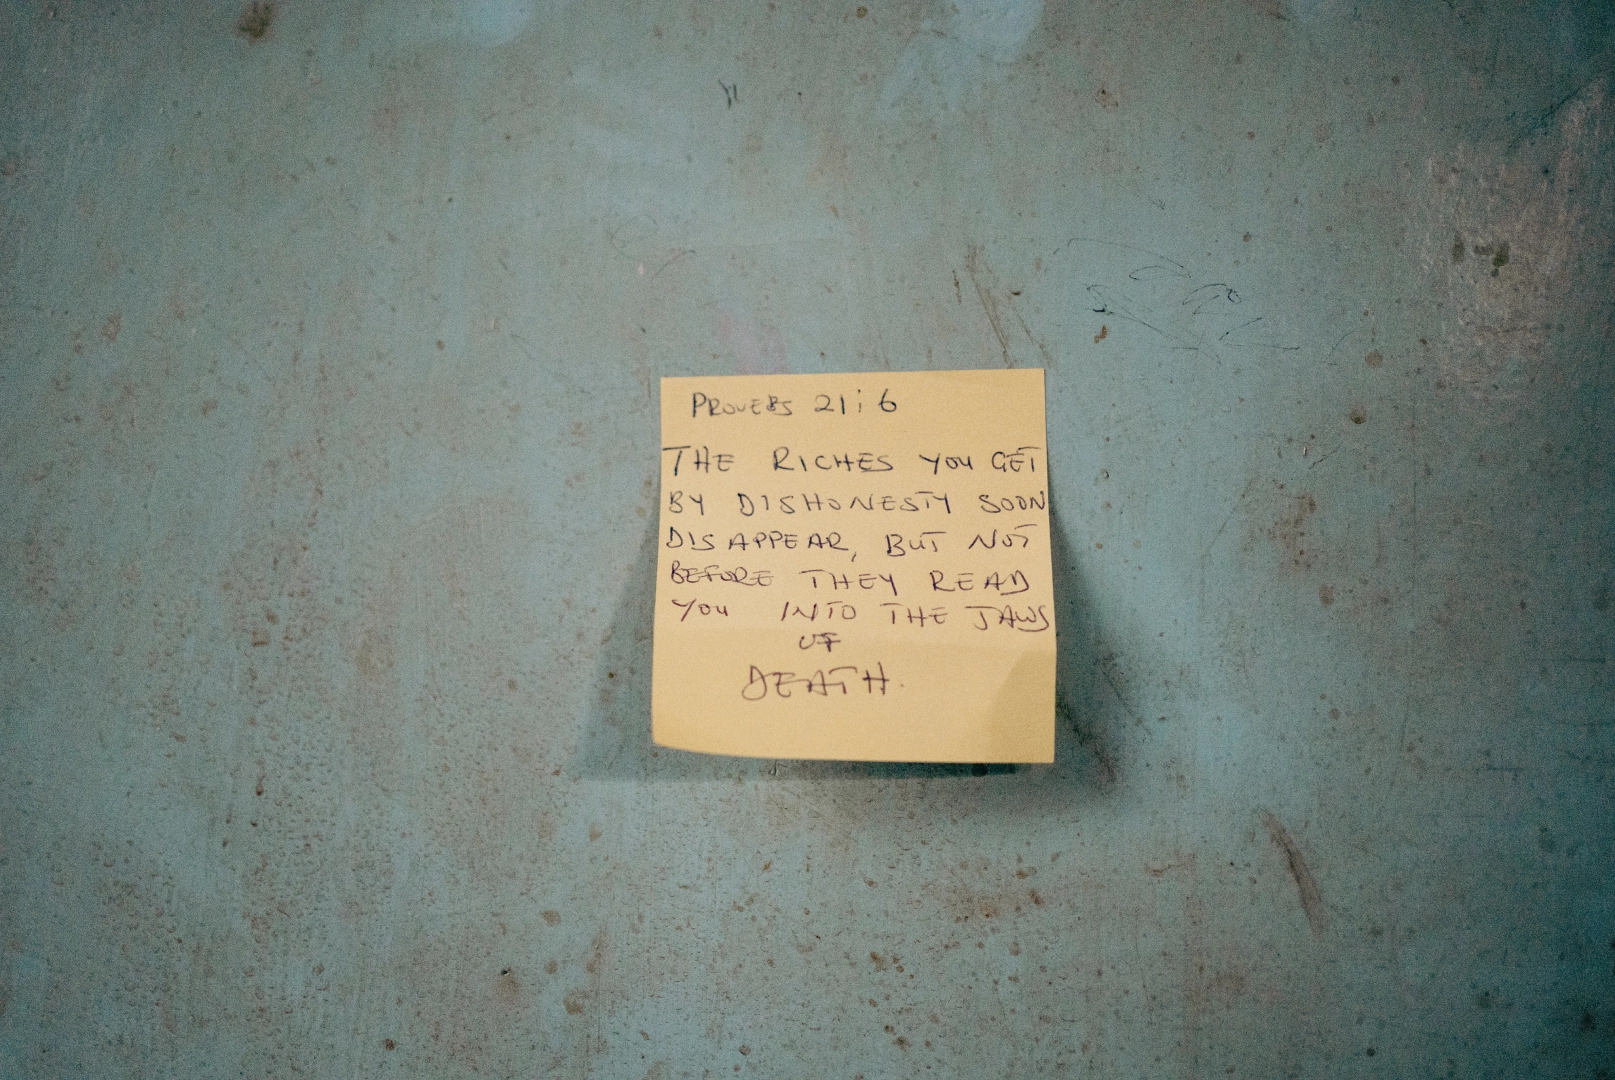 PROVERBS 21:6
THE RICHES YOU GET
BY DISHONESTY SOON
DISAPPEAR, BUT NOT
BEFORE THEY READ
YOU INTO THE JAWS
OF
DEATH.